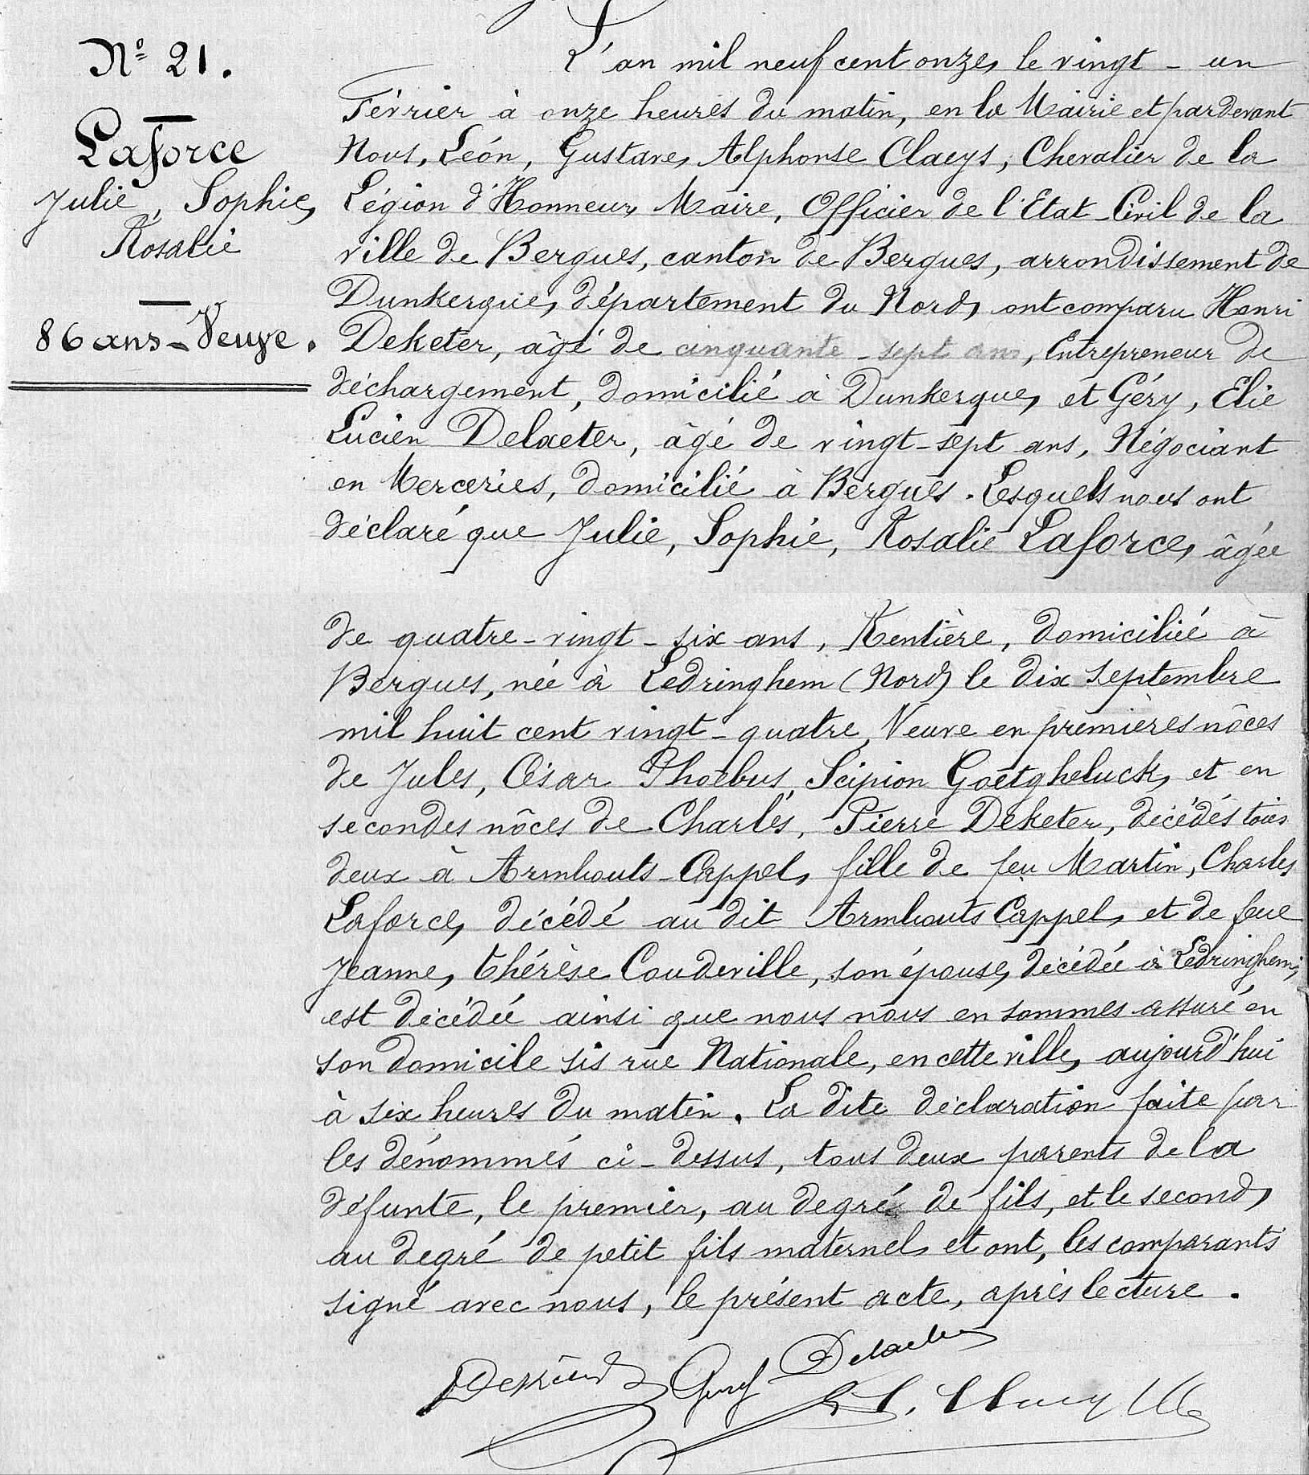 N° 21.
Laforce
Julie, Sophie,
Rosalie
86 ans - Veuve.
L'an mil neuf cent onze, le vingt - un
Février à onze heures du matin, en la Mairie et pardevant
Nous, Léon, Gustave, Alphonse Claeys, Chevalier de la
Légion d'Honneur, Maire, Officier de l'Etat-Civil de la
ville de Bergues, canton de Bergues, arrondissement de
Dunkerque, département du Nord, ont comparu Henri
Deketer, âgé de cinquante - sept ans, Entrepreneur de
déchargement, domicilié à Dunkerque, et Géry, Elie
Lucien Delaeter, âgé de vingt-sept ans, Négociant
en Merceries, domicilié à Bergues. Lesquels nous ont
déclaré que Julie, Sophie, Rosalie Laforce, âgée
de quatre-vingt-six ans, Rentière, domiciliée à
Bergues, née à Ledringhem (Nord) le dix septembre
mil huit cent vingt-quatre, Veuve en premières nôces
de Jules, César Phoebus, Scipion Goetgheluck, et en
secondes nôces de Charles, Pierre Deketer, décédés tous
deux à Armbouts-Cappel, fille de feu Martin, Charles
Laforce, décédé au dit Armbouts Cappel, et de feue
Jeanne, thérèse Coudeville, son épouse, décédée à Ledringhem,
est décédée ainsi que nous nous en sommes assuré en
son domicile sis rue Nationale, en cette ville, aujourd'hui
à six heures du matin. La dite déclaration faite par
les dénommés ci-dessus, tous deux parents de la
défunte, le premier, au degré de fils, et le second,
au degré de petit fils maternel et ont, les comparants
signé avec nous, le présent acte, après lecture.
Delaeter